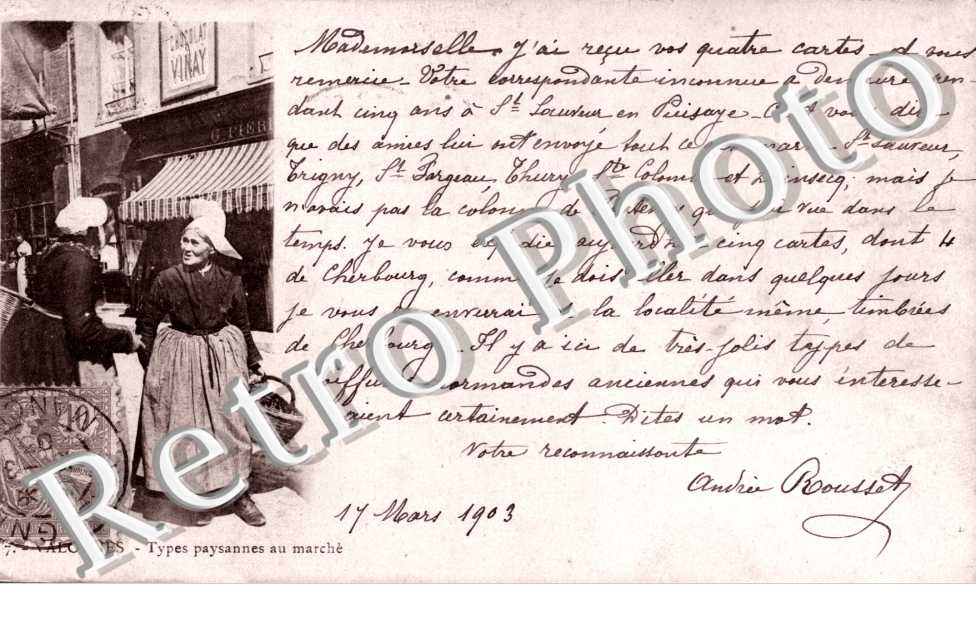 CHOCOLAT
VINAY
G. PIERR
Mademoiselle, J'ai reçu vos quatre cartes et vous
remercie. Votre correspondante inconnue a demeuré pen
dant cinq ans à St Sauveur en Puisaye - C'est vous dire
que des amies lui ont envoyé tout ce St Sauveur,
Treigny, St Fargeau, Thury, Ste Colombe et mais je
n'avais pas la colonie de que j'ai vue dans le
temps. Je vous expédie aujourd'hui cinq cartes, dont 4
de Cherbourg, comme je dois aller dans quelques jours
je vous enverrai de la localité même timbrées
de Cherbourg. Il y a ici de très-jolis types de
coiffures normandes anciennes qui vous intéresse-
raient certainement. Dites un mot.
Votre reconnaissante
Andrée Rousset
17 Mars 1903
7. - VALOGNES - Types paysannes au marché
Retro Photo